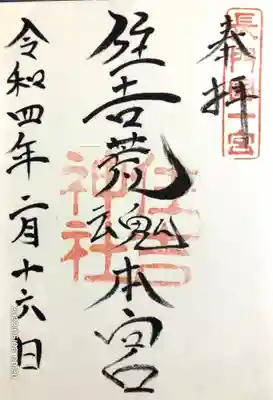 長門國一宮
奉拝
住吉荒魂本宮
住吉神社
令和四年二月十六日